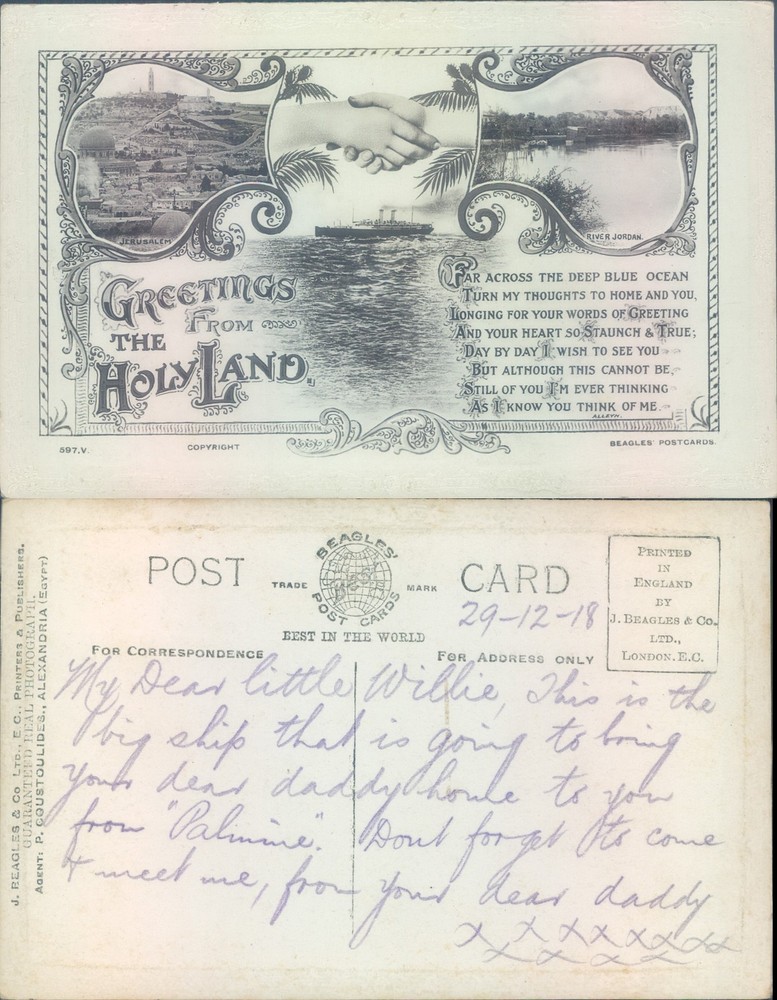 JERUSALEM
RIVER JORDAN.
GREETINGS
FROM
THE
HOLY LAND.
FAR ACROSS THE DEEP BLUE OCEAN
TURN MY THOUGHTS TO HOME AND YOU,
LONGING FOR YOUR WORDS OF GREETING
AND YOUR HEART SO STAUNCH & TRUE;
DAY BY DAY I WISH TO SEE YOU
BUT ALTHOUGH THIS CANNOT BE,
STILL OF YOU I'M EVER THINKING
AS I KNOW YOU THINK OF ME.
ALLEYN.
597.V.
COPYRIGHT
BEAGLES' POSTCARDS.
J. BEAGLES & Co. LTD., E.C., PRINTERS & PUBLISHERS.
GUARANTEED REAL PHOTOGRAPH.
AGENT: P. COUSTOULIDES., ALEXANDRIA (EGYPT)
POST CARD
TRADE MARK
BEAGLES'
POST CARDS
BEST IN THE WORLD
PRINTED
IN
ENGLAND
BY
J. BEAGLES & Co.
LTD.,
LONDON. E.C.
29-12-18
FOR CORRESPONDENCE
FOR ADDRESS ONLY
My Dear little Willie, This is the
big ship that is going to bring
your dear daddy home to you
from "Palmine". Dont forget to come
& meet me, from your dear daddy
x x x x x x x x
x x x x